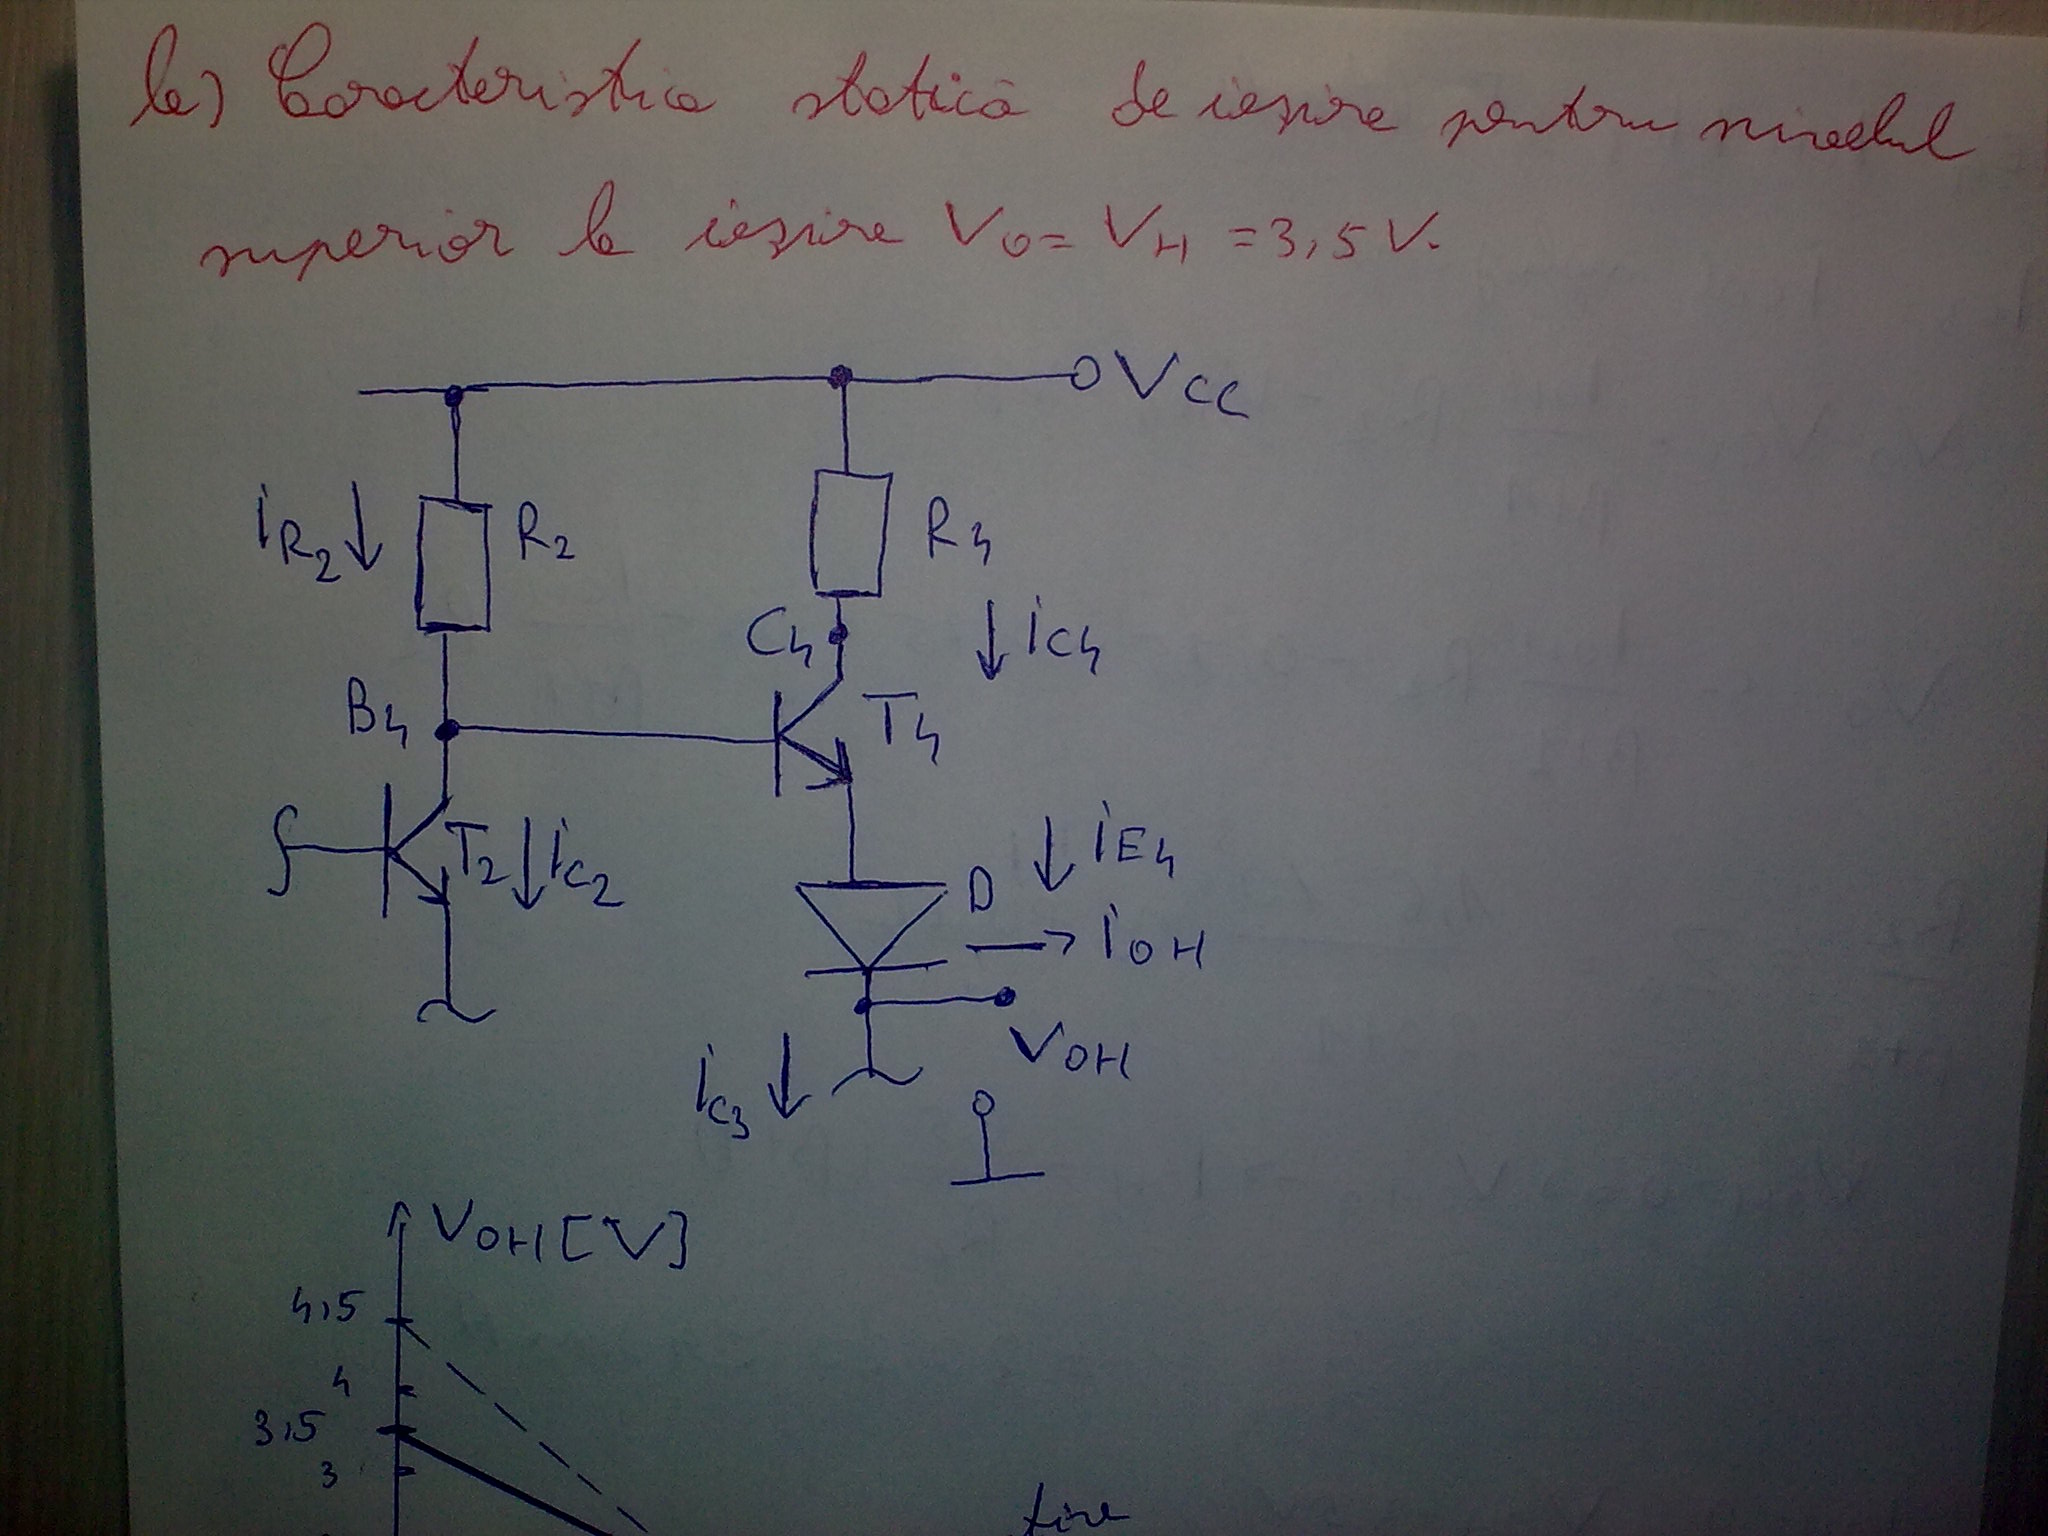 b) Caracteristica statică de ieşire pentru nivelul
superior la ieşire Vo = VH = 3,5 V.
VCC
iR2
R2
R4
C4
iC4
B4
T4
T2
iC2
iE4
D
iOH
VOH
iC3
VOH [V]
4,5
4
3,5
3